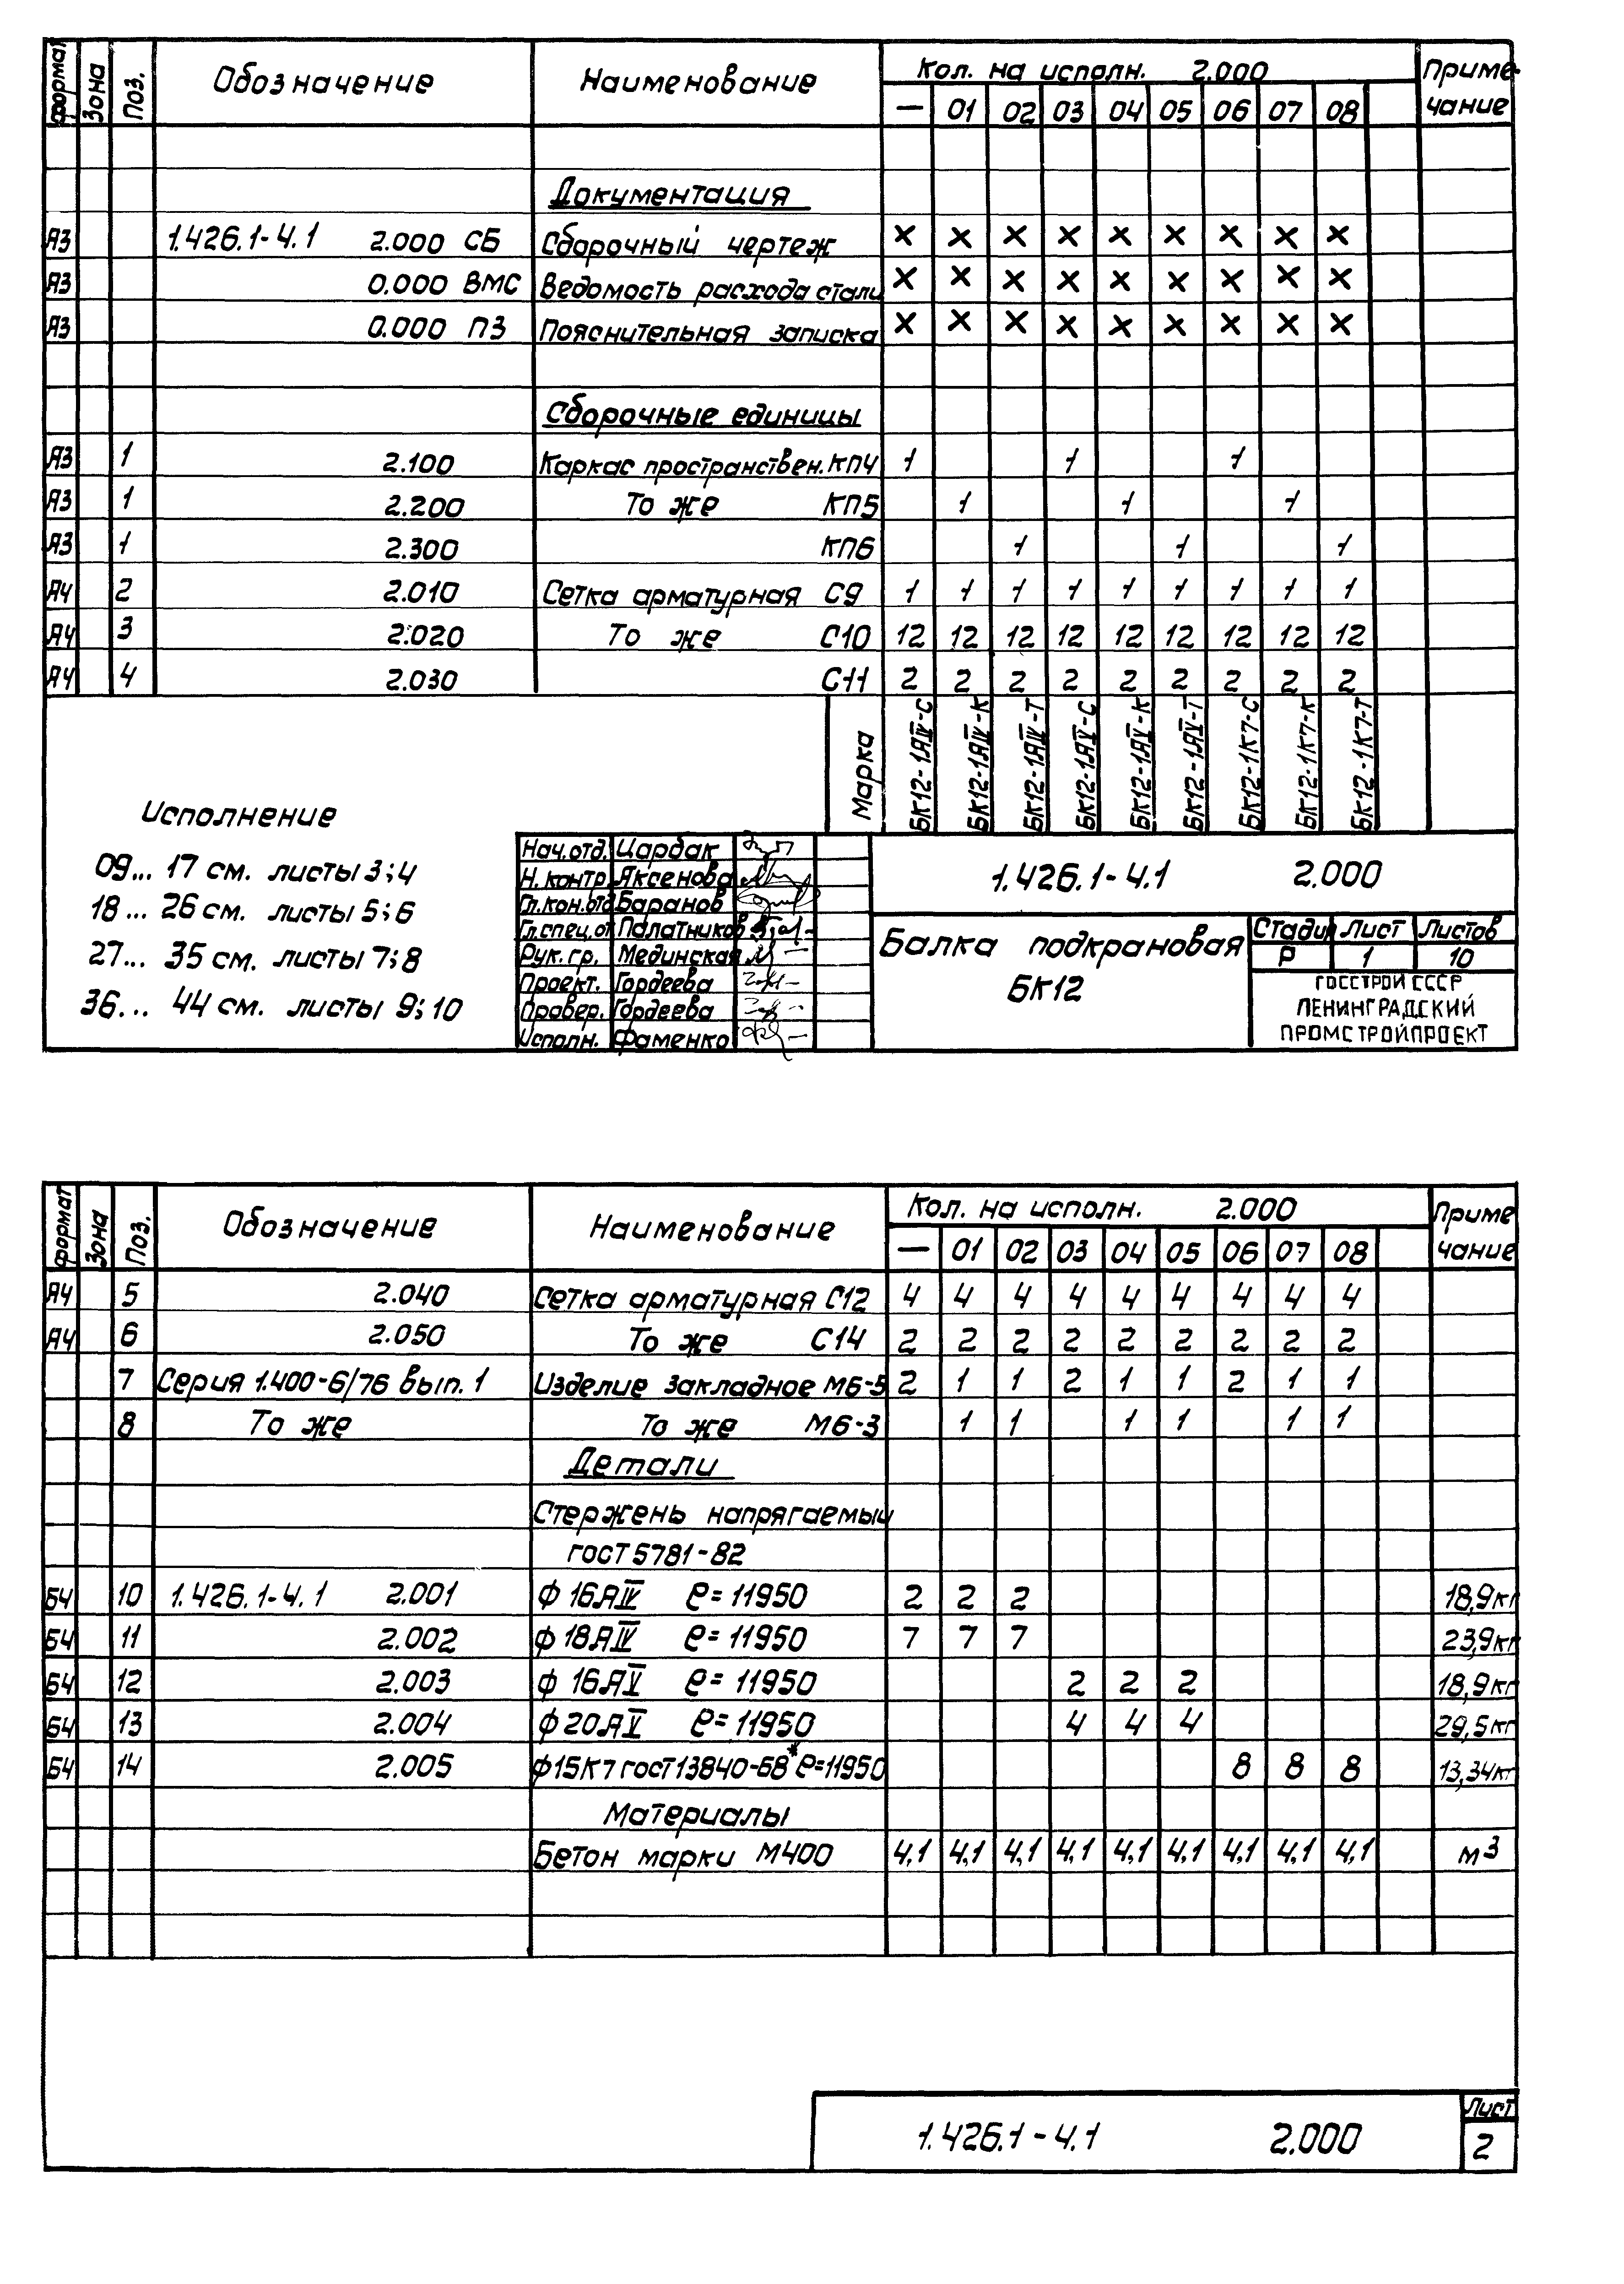 формат Зона Поз. Обозначение Наименование Кол. на исполн. 2.000 Приме-
чание
— 01 02 03 04 05 06 07 08
Документация
А3 1.426.1-4.1 2.000 СБ Сборочный чертеж × × × × × × × × ×
А3 0.000 ВМС Ведомость расхода стали × × × × × × × × ×
А3 0.000 ПЗ Пояснительная записка × × × × × × × × ×
Сборочные единицы
А3 1 2.100 Каркас пространствен. КП4 1 1 1
А3 1 2.200 То же КП5 1 1 1
А3 1 2.300 КП6 1 1 1
А4 2 2.010 Сетка арматурная С9 1 1 1 1 1 1 1 1 1
А4 3 2.020 То же С10 12 12 12 12 12 12 12 12 12
А4 4 2.030 С11 2 2 2 2 2 2 2 2 2
Марка БК12-1АIV-С БК12-1АIV-К БК12-1АIV-Т БК12-1АV-С БК12-1АV-К БК12-1АV-Т БК12-1К7-С БК12-1К7-К БК12-1К7-Т
Исполнение
09... 17 см. листы 3;4
18... 26 см. листы 5;6
27... 35 см. листы 7;8
36... 44 см. листы 9;10
Нач.отд. Царбак
Н.контр. Аксенова
Гл.кон.отд. Баранов
Гл.спец.от Палатников
Рук. гр. Мединская
Проект. Гордеева
Провер. Гордеева
Исполн. Фоменко
1.426.1-4.1 2.000
Балка подкрановая
БК12
Стадия Лист Листов
Р 1 10
ГОССТРОЙ СССР
ЛЕНИНГРАДСКИЙ
ПРОМСТРОЙПРОЕКТ
формат Зона Поз. Обозначение Наименование Кол. на исполн. 2.000 Приме
чание
— 01 02 03 04 05 06 07 08
А4 5 2.040 Сетка арматурная С12 4 4 4 4 4 4 4 4 4
А4 6 2.050 То же С14 2 2 2 2 2 2 2 2 2
7 Серия 1.400-6/76 вып. 1 Изделие закладное М6-5 2 1 1 2 1 1 2 1 1
8 То же То же М6-3 1 1 1 1 1 1
Детали
Стержень напрягаемый
ГОСТ 5781-82
Б4 10 1.426.1-4.1 2.001 ф 16АIV ℓ=11950 2 2 2 18,9кг
Б4 11 2.002 ф 18АIV ℓ=11950 7 7 7 23,9кг
Б4 12 2.003 ф 16АV ℓ=11950 2 2 2 18,9кг
Б4 13 2.004 ф 20АV ℓ=11950 4 4 4 29,5кг
Б4 14 2.005 ф15К7 ГОСТ 13840-68* ℓ=11950 8 8 8 13,34кг
Материалы
Бетон марки М400 4,1 4,1 4,1 4,1 4,1 4,1 4,1 4,1 4,1 м³
1.426.1-4.1 2.000
Лист
2